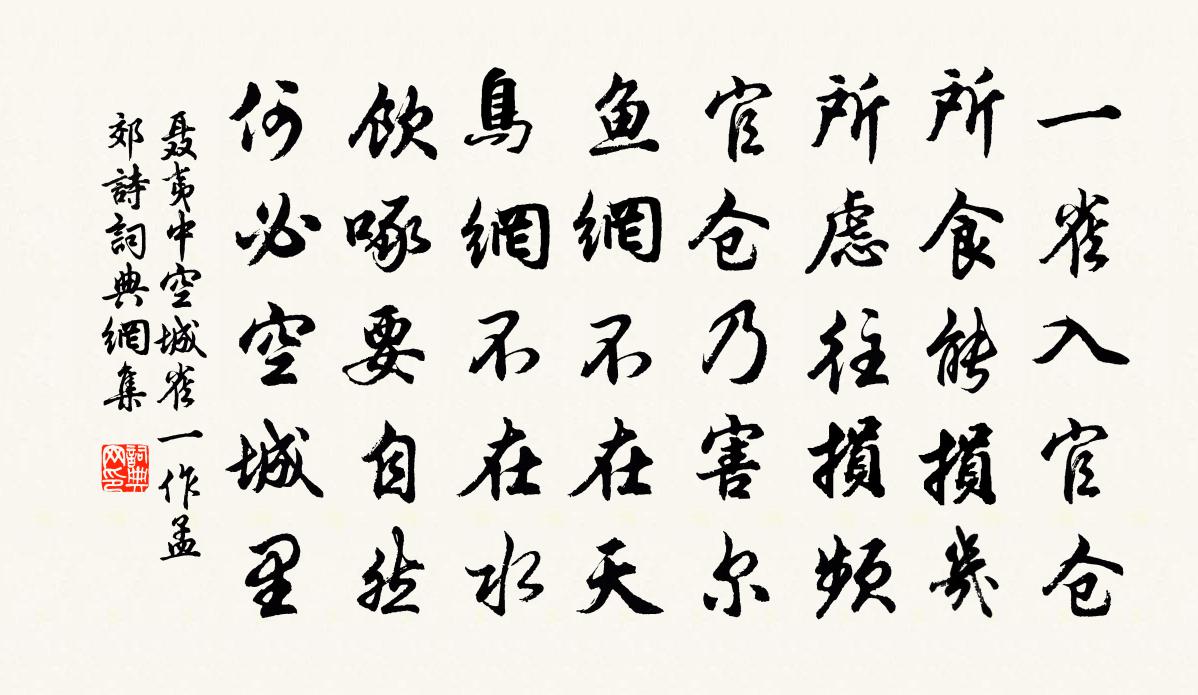 一雀入官仓
所食能損幾
所慮往損頻
官仓乃害尔
鱼網不在天
鳥網不在水
飲啄要自然
何必空城里
聂夷中空城雀一作孟
郊詩詞典網集
詞典
网印